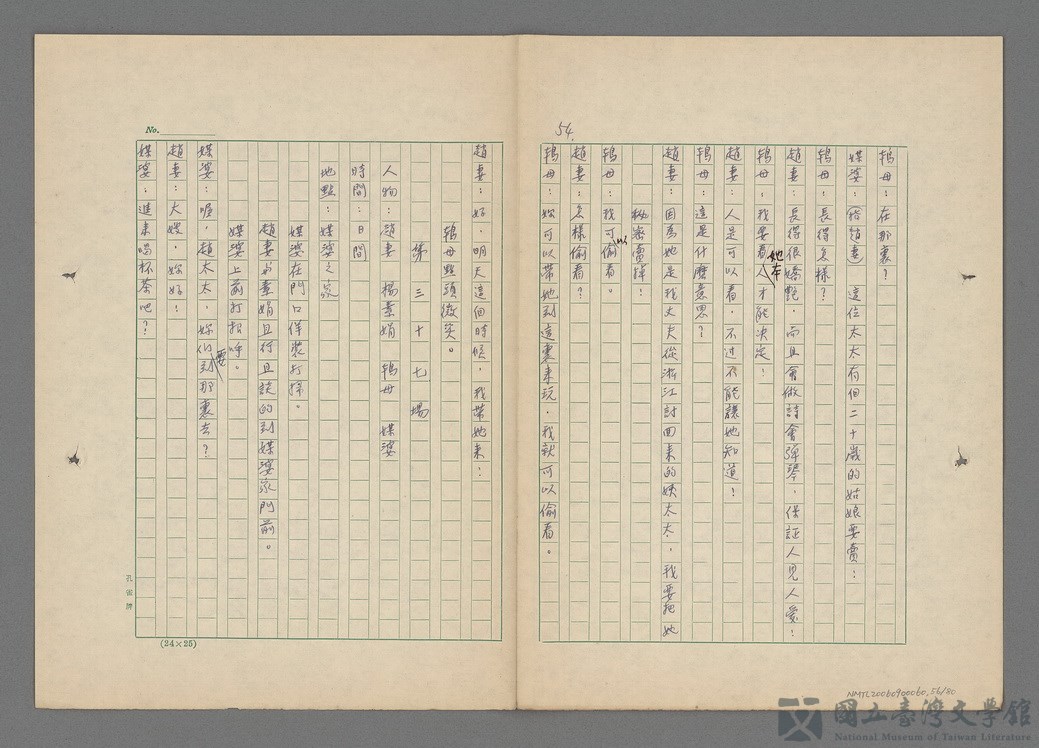 54.
鴇母：在那裏？
媒婆：（指趙妻）這位太太有個二十歲的姑娘要賣！
鴇母：長得怎樣？
趙妻：長得很嬌艷，而且會做詩會彈琴，保証人見人愛！
鴇母：我要看她本人才能決定！
趙妻：人是可以看，不过不能讓她知道！
鴇母：這是什麼意思？
趙妻：因為她是我丈夫從浙江討回來的姨太太，我要把她
秘密賣掉！
鴇母：我可以偷看。
趙妻：怎樣偷看？
鴇母：妳可以帶她到這裏來玩，我就可以偷看。
趙妻：好，明天這個時候，我帶她來！
鴇母點頭微笑。
第三十七場
人物：趙妻 楊素娟 鴇母 媒婆
時間：日間
地點：媒婆之家
媒婆在門口佯裝打掃。
趙妻与素娟且行且談的到媒婆家門前。
媒婆上前打招呼。
媒婆：喔，趙太太，妳们要到那裏去？
趙妻：大嫂，妳好！
媒婆：進來喝杯茶吧？
No.
孔雀牌
(24×25)
NMTL20060900060, 56/80
國立臺灣文學館
National Museum of Taiwan Literature